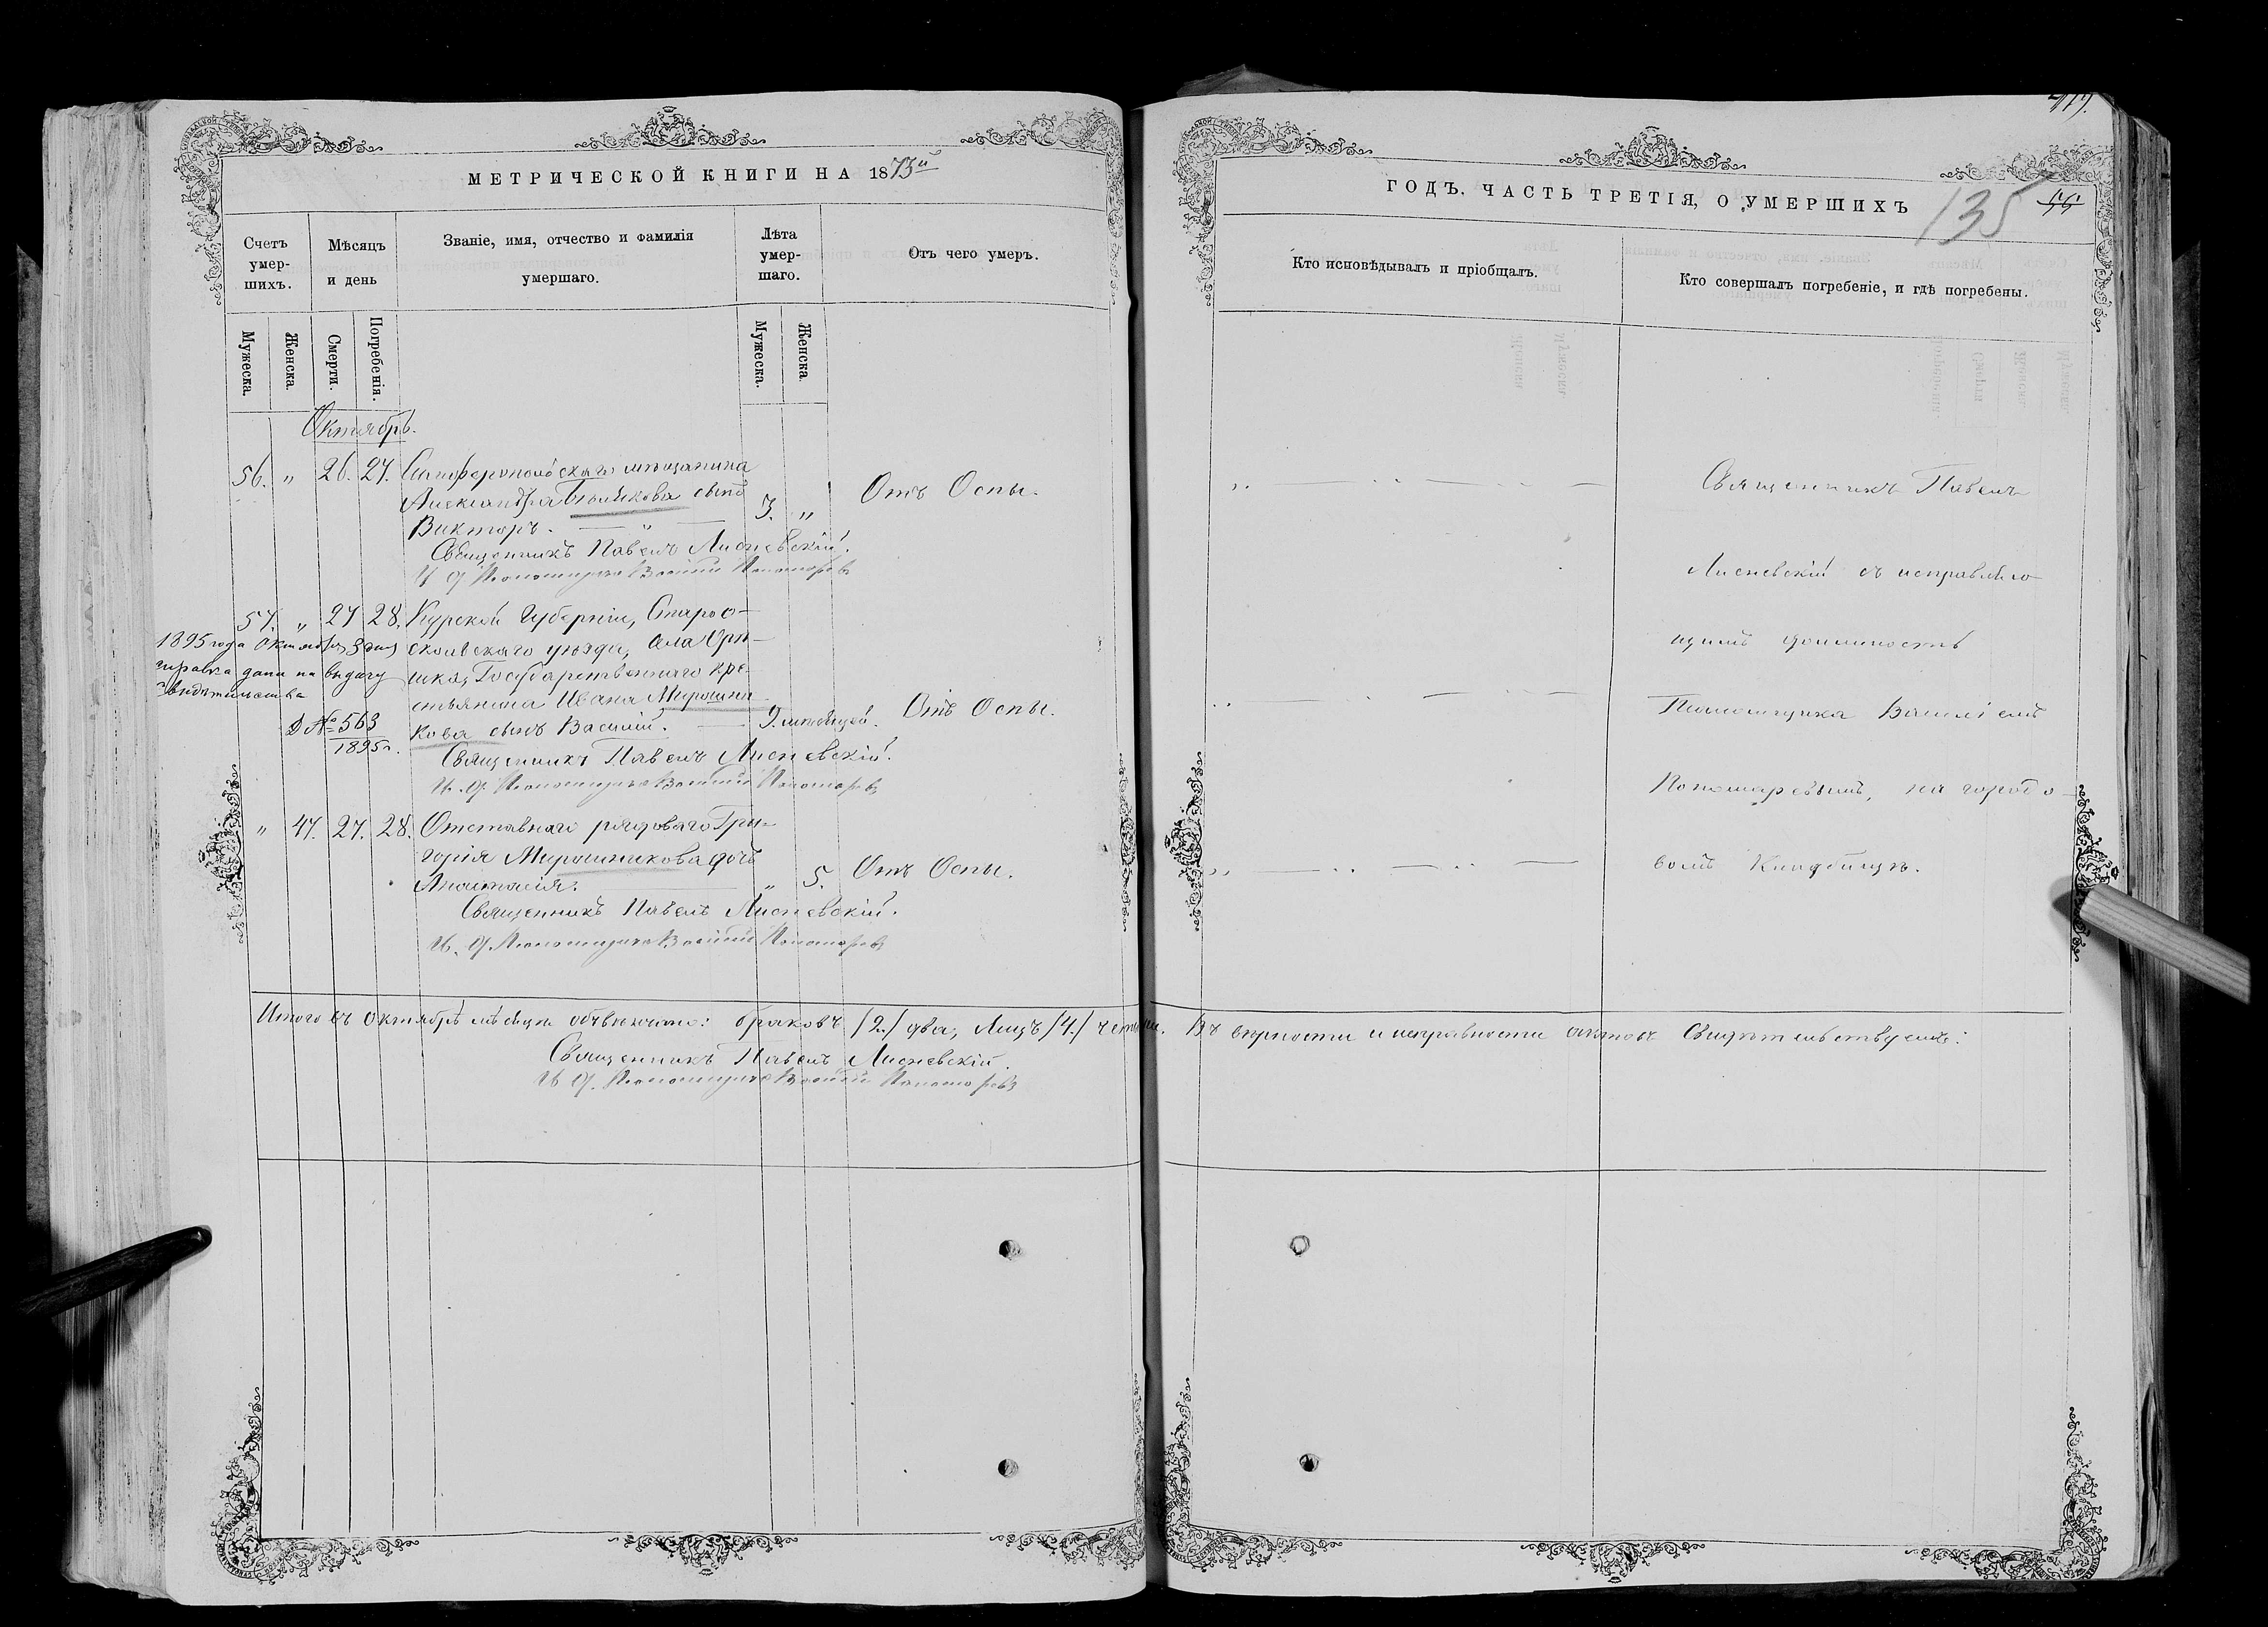 МЕТРИЧЕСКОЙ КНИГИ НА 1873й
Счетъ умер-шихъ.
Мѣсяцъ и день
Званіе, имя, отчество и фамилія умершаго.
Лѣта умер-шаго.
Отъ чего умеръ.
Мужеска.
Женска.
Смерти.
Погребенія.
Мужеска.
Женска.
Октябрь.
56. „ 26. 27. Симферопольскаго мѣщанина
Александра сынъ
Викторъ. — „ — 3. „ Отъ Оспы.
Священникъ Павелъ Лисневскій.
И. д. Псаломщика Василій Пономаревъ
57. „ 27 28. Курской Губерніи, Старо о-
скольскаго уѣзда, села
Государственнаго кре-
стьянина Ивана Мирошни-
кова сынъ Василій. — 9. мѣсяцей. Отъ Оспы.
1895 года Октября 3 дня
справка дана на выдачу
свидѣтельства
№ 563
1895 г.
Священникъ Павелъ Лисневскій.
И. д. Псаломщика Василій Пономаревъ
„ 47. 27. 28. Отставнаго рядоваго Гри-
горія Мирошникова дочь
Анастасія. — „ 5. Отъ Оспы.
Священникъ Павелъ Лисневскій.
И. д. Псаломщика Василій Пономаревъ
Итого въ Октябрѣ мѣсяцѣ браковъ /2./ два, Лицъ /4./
Священникъ Павелъ Лисневскій.
И. д. Псаломщика Василій Пономаревъ
ГОДЪ. ЧАСТЬ ТРЕТІЯ, О УМЕРШИХЪ
135
Кто исповѣдывалъ и пріобщалъ.
Кто совершалъ погребеніе, и гдѣ погребены.
Священникъ Павелъ
Лисневскій съ исправляю-
щимъ должность
Псаломщика Василіемъ
Пономаревымъ, на городо-
вомъ Кладбищѣ.
Въ вѣрности и исправности актовъ свидѣтельствуемъ: